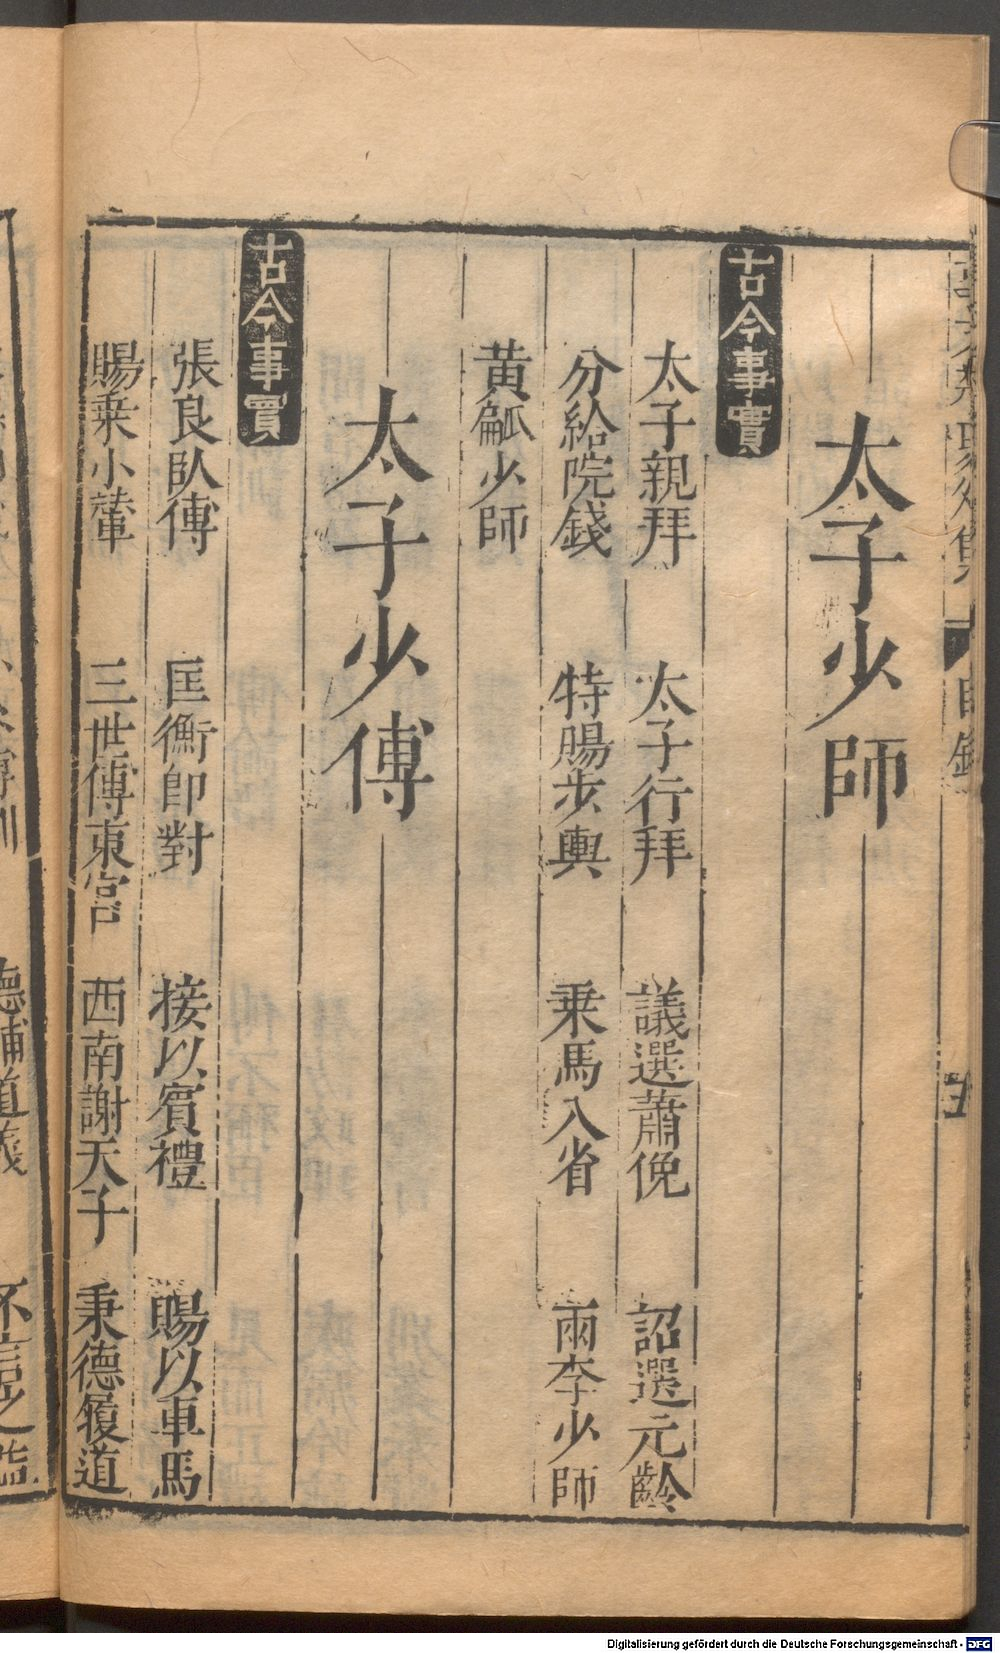 太子少師
古今事實
太子親拜 太子行拜 議選蕭俛 詔選元齡
分給院錢 特賜步輿 乗馬入省 兩李少師
黄觚少師
太子少傅
古今事實
張良臥傅 匡衡即對 接以賓禮 賜以車馬
賜乗小輦 三世傅東宮 西南謝天子 秉德履道
德輔道義
Digitalisierung gefördert durch die Deutsche Forschungsgemeinschaft - DFG